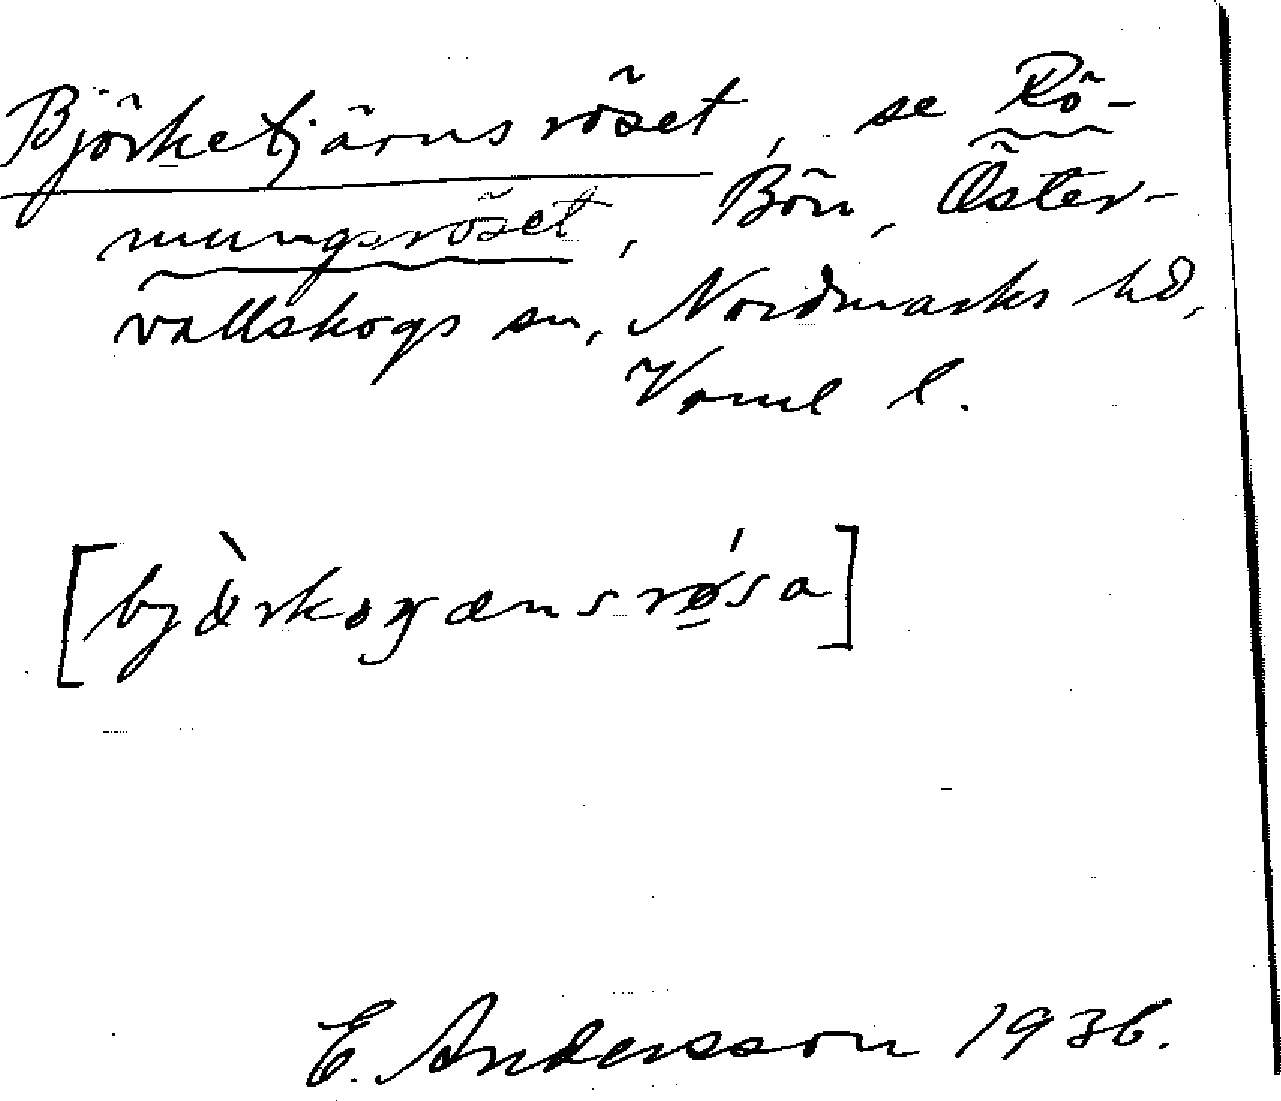 Björketjärnsröset, se Rö-
mungsröset, Bön, Öster-
vallskogs sn, Nordmarks hd,
Värml l.
[bjö̀rkoɟænsrǿsa]
E. Andersson 1936.